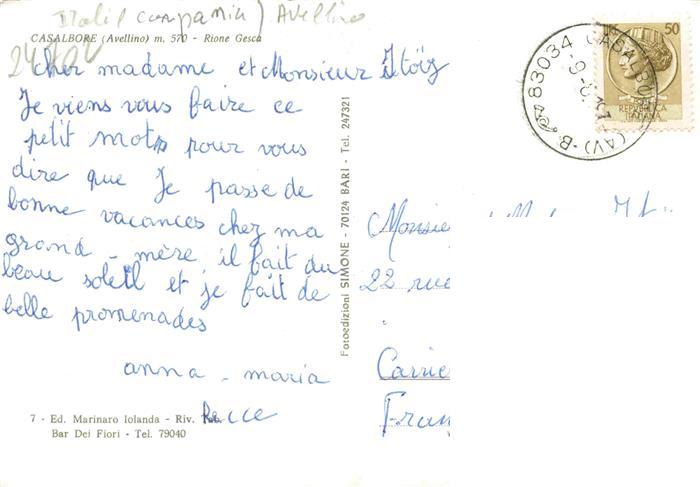 Avellino
CASALBORE (Avellino) m. 570 - Rione Gesca
cher madame et Monsieur
Je viens vous faire ce
petit mot pour vous
dire que Je passe de
bonne vacances chez ma
grand-mère, il fait du
beau soleil et je fait de
belle promenades
anna - maria
Recce
7 - Ed. Marinaro Iolanda - Riv.
Bar Dei Fiori - Tel. 79040
Fotoedizioni SIMONE - 70124 BARI - Tel. 247321
50
REPUBBLICA
ITALIANA
83034 CASALBO (AV)
Monsie
22 rue
Carrie
Fran